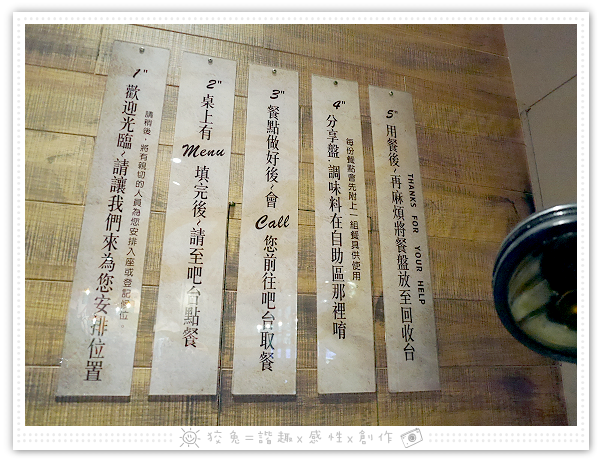 1" 歡迎光臨~請讓我們來為您安排位置
請稍後,將有親切的人員為您安排入座或登記候位.
2" 桌上有 Menu 填完後~請至吧台點餐
3" 餐點做好後~會 Call 您前往吧台取餐
4" 分享盤.調味料在自助區那裡唷
每份餐點會先附上一組餐具供使用
5" 用餐後~再麻煩將餐盤放至回收台
THANKS FOR YOUR HELP
狡兔=諧趣x感性x創作